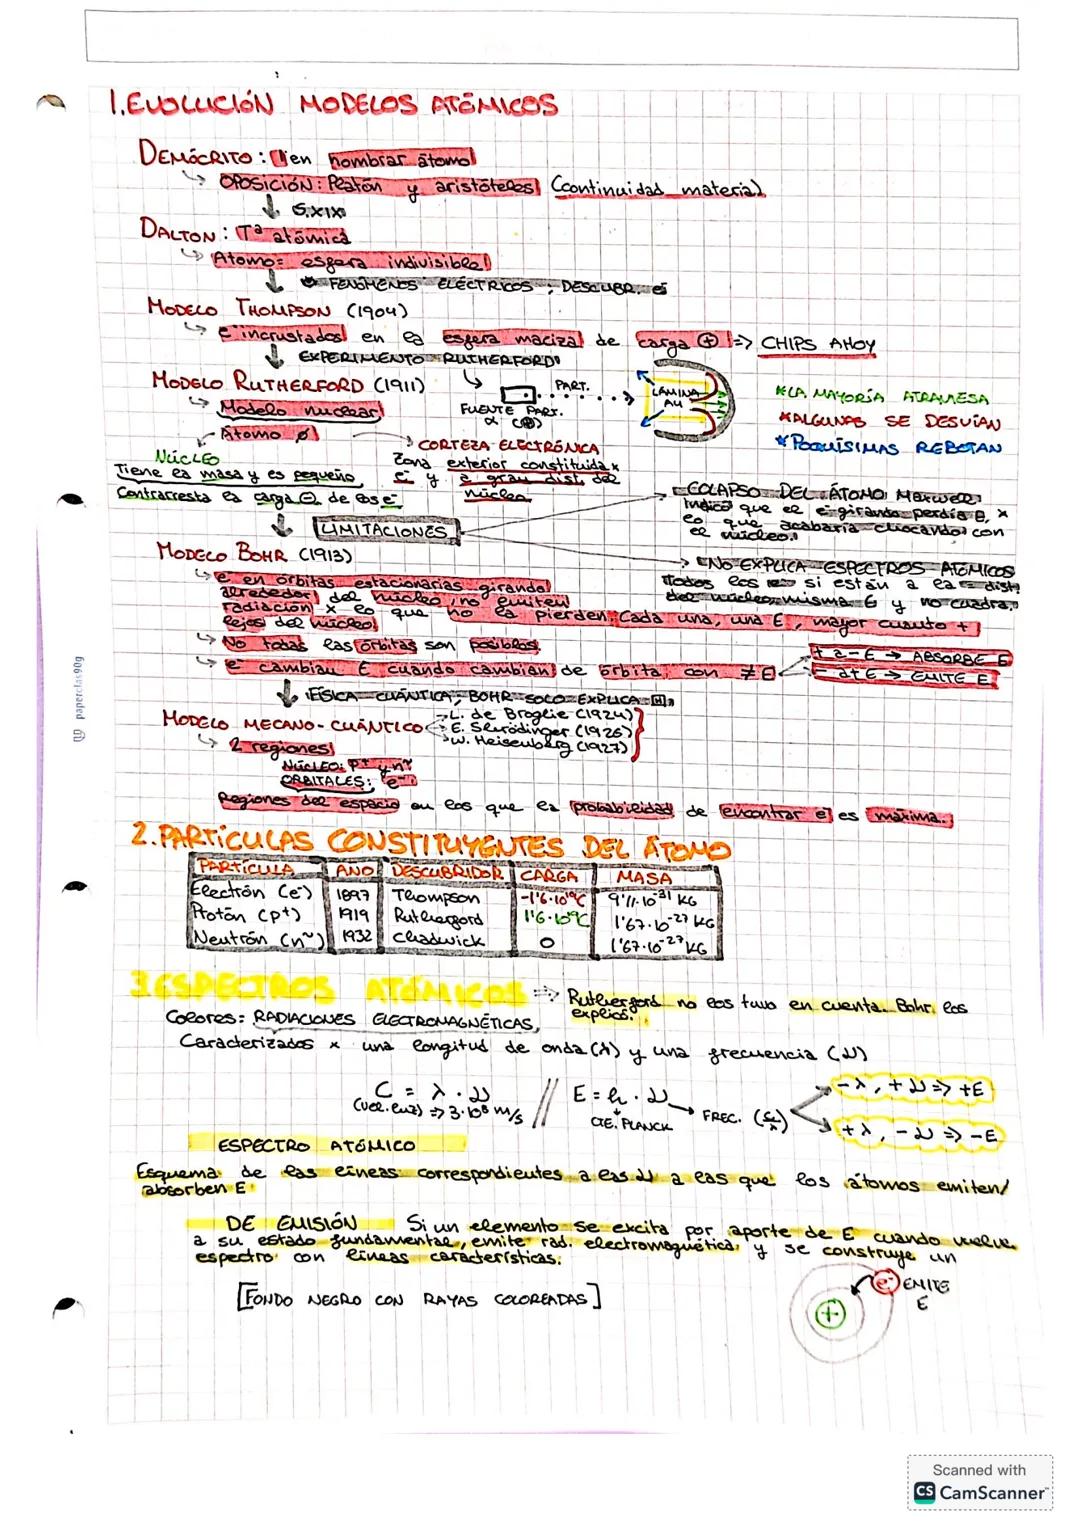 1. EVOLUCIÓN MODELOS ATÓMICOS
DEMÓCRITO: 1º en nombrar átomo
↳ OPOSICIÓN: Platón y aristóteles (continuidad materia)
↓ S.XIX
DALTON: Tª atómica
↳ Átomo= esfera indivisible
↓ FENÓMENOS ELÉCTRICOS, DESCUBR. e⁻
MODELO THOMPSON (1904)
↳ e⁻ incrustados en la esfera maciza de carga ⊕ => CHIPS AHOY
↓ EXPERIMENTO RUTHERFORD
MODELO RUTHERFORD (1911)
↳ Modelo nuclear
Átomo Ø
FUENTE PART. α (⊕)
PART.
LÁMINA AU
*LA MAYORÍA ATRAVIESA
*ALGUNAS SE DESVÍAN
*POQUÍSIMAS REBOTAN
NÚCLEO
Tiene la masa y es pequeño
Contrarresta la carga ⊖ de los e⁻
CORTEZA ELECTRÓNICA
Zona exterior constituida x
e⁻ y a gran dist. del
núcleo
↓ LIMITACIONES
COLAPSO DEL ÁTOMO Maxwell
indicó que el e⁻ girando perdía E, x
lo que acabaría chocando con
el núcleo.
NO EXPLICA ESPECTROS ATÓMICOS
todos los e⁻ si están a la = dist.
del núcleo, misma E y no cuadra
MODELO BOHR (1913)
↳ e⁻ en órbitas estacionarias girando
alrededor del núcleo, no emiten
radiación x lo que no la pierden. Cada una, una E, mayor cuanto +
lejos del núcleo
↳ No todas las órbitas son posibles.
↳ e⁻ cambian E cuando cambian de órbita, con ≠ E
+ a - E → ABSORBE E
- a + E → EMITE E
↓ FÍSICA CUÁNTICA, BOHR SOLO EXPLICA H
MODELO MECANO-CUÁNTICO
L. de Broglie (1924)
E. Shrödinger (1926)
W. Heisenberg (1927)
↳ 2 regiones
NÚCLEO: p⁺ y n~
ORBITALES: e⁻
Regiones del espacio en los que la probabilidad de encontrar e⁻ es máxima.
2. PARTÍCULAS CONSTITUYENTES DEL ÁTOMO
PARTÍCULA AÑO DESCUBRIDOR CARGA MASA
Electrón (e⁻) 1897 Thompson -1'6·10⁻¹⁹C 9'11·10⁻³¹ KG
Protón (p⁺) 1919 Rutherford 1'6·10⁻¹⁹C 1'67·10⁻²⁷ KG
Neutrón (n~) 1932 Chadwick 0 1'67·10⁻²⁷ KG
3. ESPECTROS ATÓMICOS => Rutherford no los tuvo en cuenta. Bohr los
explicó.
Colores: RADIACIONES ELECTROMAGNÉTICAS,
Caracterizados x una longitud de onda (λ) y una frecuencia (ν)
C = λ · ν // E = h · ν
(vel. luz) => 3·10⁸ m/s
CTE. PLANCK
FREC. (c/λ)
-λ, +ν => +E
+λ, -ν => -E
ESPECTRO ATÓMICO
Esquema de las líneas correspondientes a las ν a las que los átomos emiten/
absorben E
DE EMISIÓN Si un elemento se excita por aporte de E cuando vuelve
a su estado fundamental, emite rad. electromagnética, y se construye un
espectro con líneas características.
[FONDO NEGRO CON RAYAS COLOREADAS]
e⁻ EMITE
E
+
paperclas90g
Scanned with
CS CamScanner